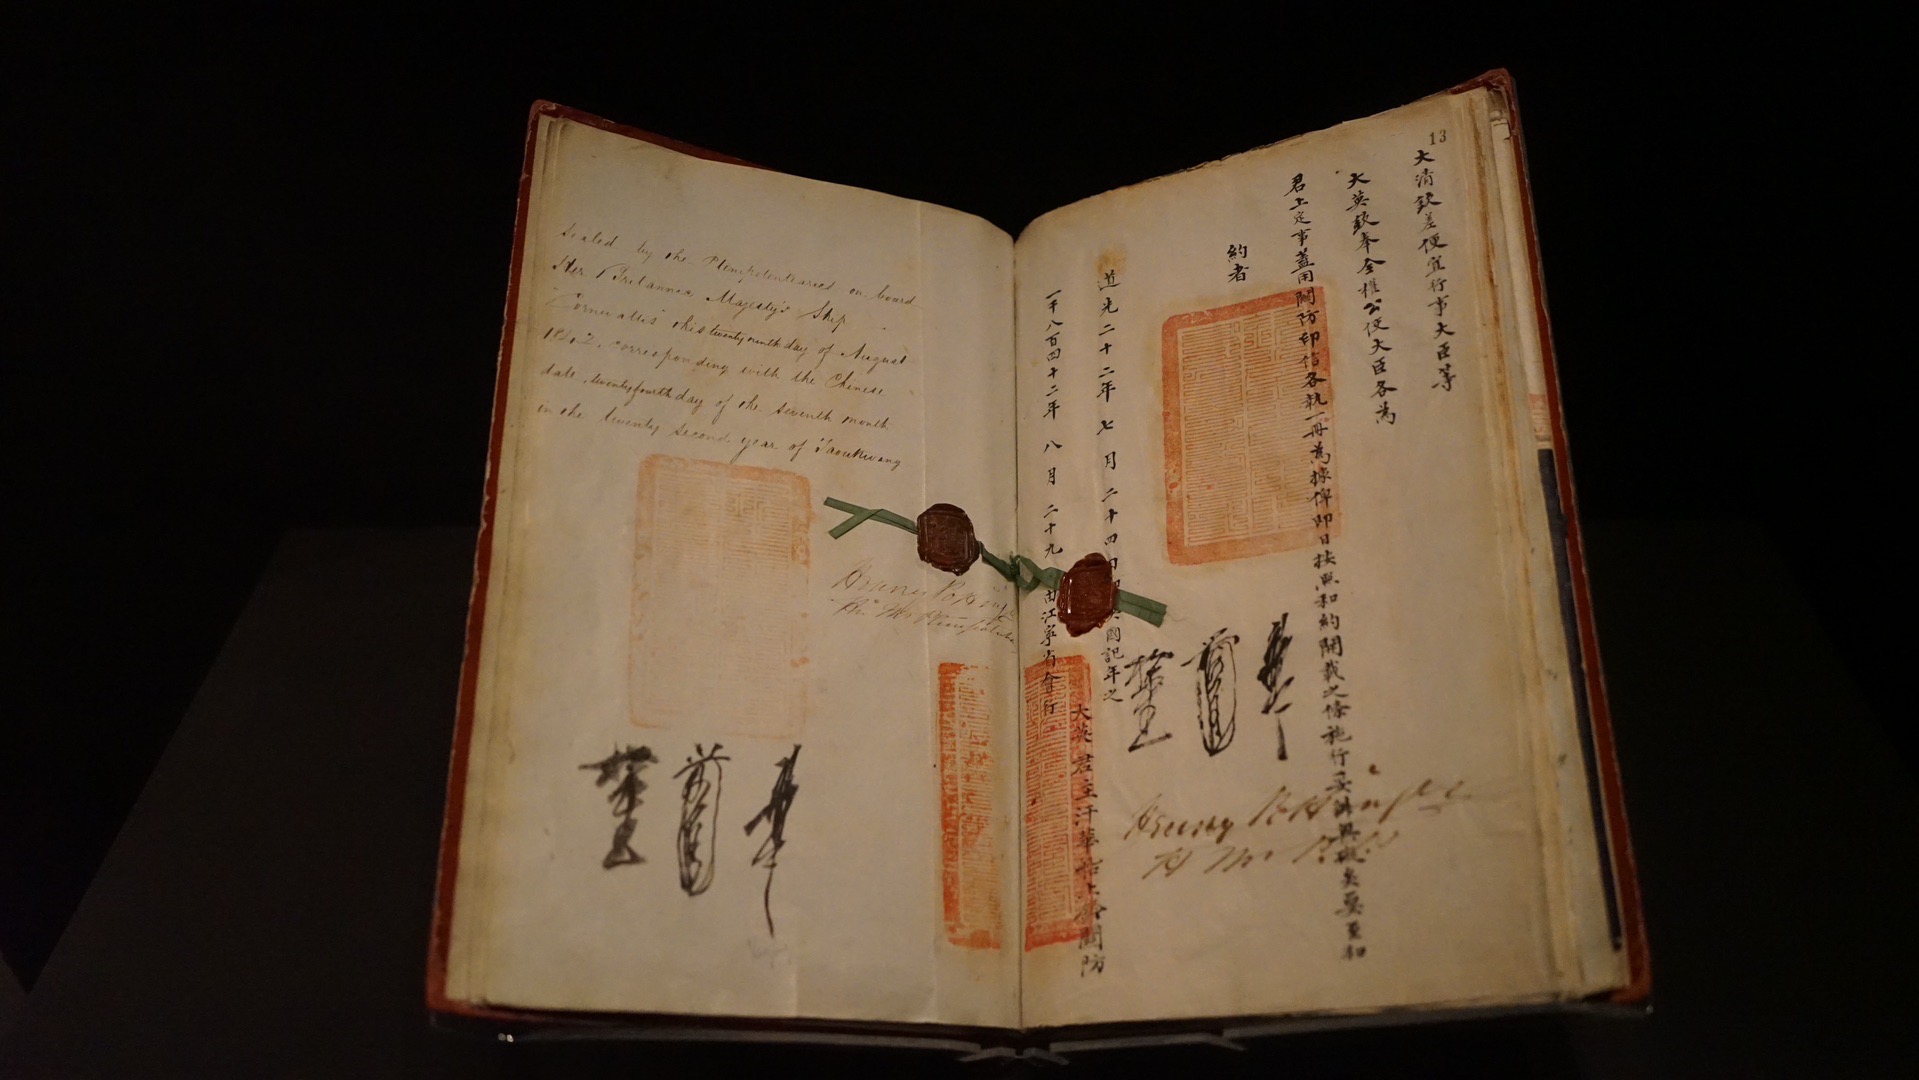 Sealed by the Plenipotentiaries on board
Her Britannic Majesty's Ship
Cornwallis this twenty ninth day of August
1842, corresponding with the Chinese
date, twenty fourth day of the seventh month
in the twenty second year of Taoukwang
Henry Pottinger
13
大清欽差便宜行事大臣等
大英欽奉全權公使大臣各為
君上定事蓋用關防印信各執一冊為據俾即日按照和約開載之條施行妥辦無礙矣要至和
約者
道光二十二年七月二十四日即英國記年之
一千八百四十二年八月二十九日由江寧省會行
大英君主汗華船上鈐關防
Henry Pottinger